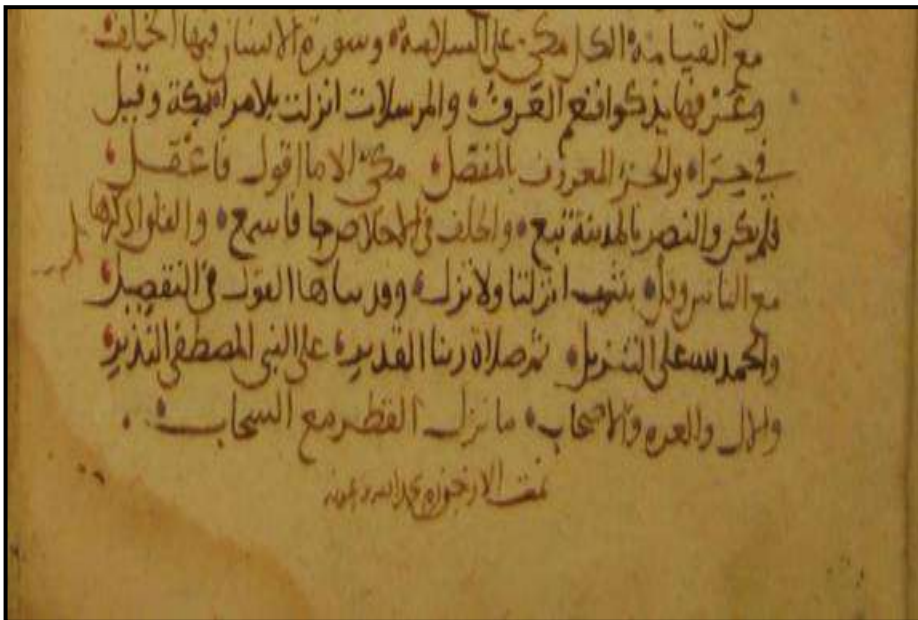 مع القيامة الكل مكي على السلامة وسورة الانسان فيها الخلف
فيها يذكوا العرف والمرسلات انزلت بلا مرا بمكة وقيل
في حرا والحزب المعروف بالمفصل مكي الا ما اقول فاعقل
فلم يكن والنصر بالمدينة تبع والخلف في الاخلاص جا فاسمع والفلق
مع الناس وقل بيثرب انزلتا ولا نزل وقد القول في التفصيل
والحمد لله على التنزيل ثم صلاة ربنا القدير على النبي المصطفى النذير
والال والعترة والاصحاب ما نزل القطر مع السحاب
تمت الارجوزة بحمد الله وعونه